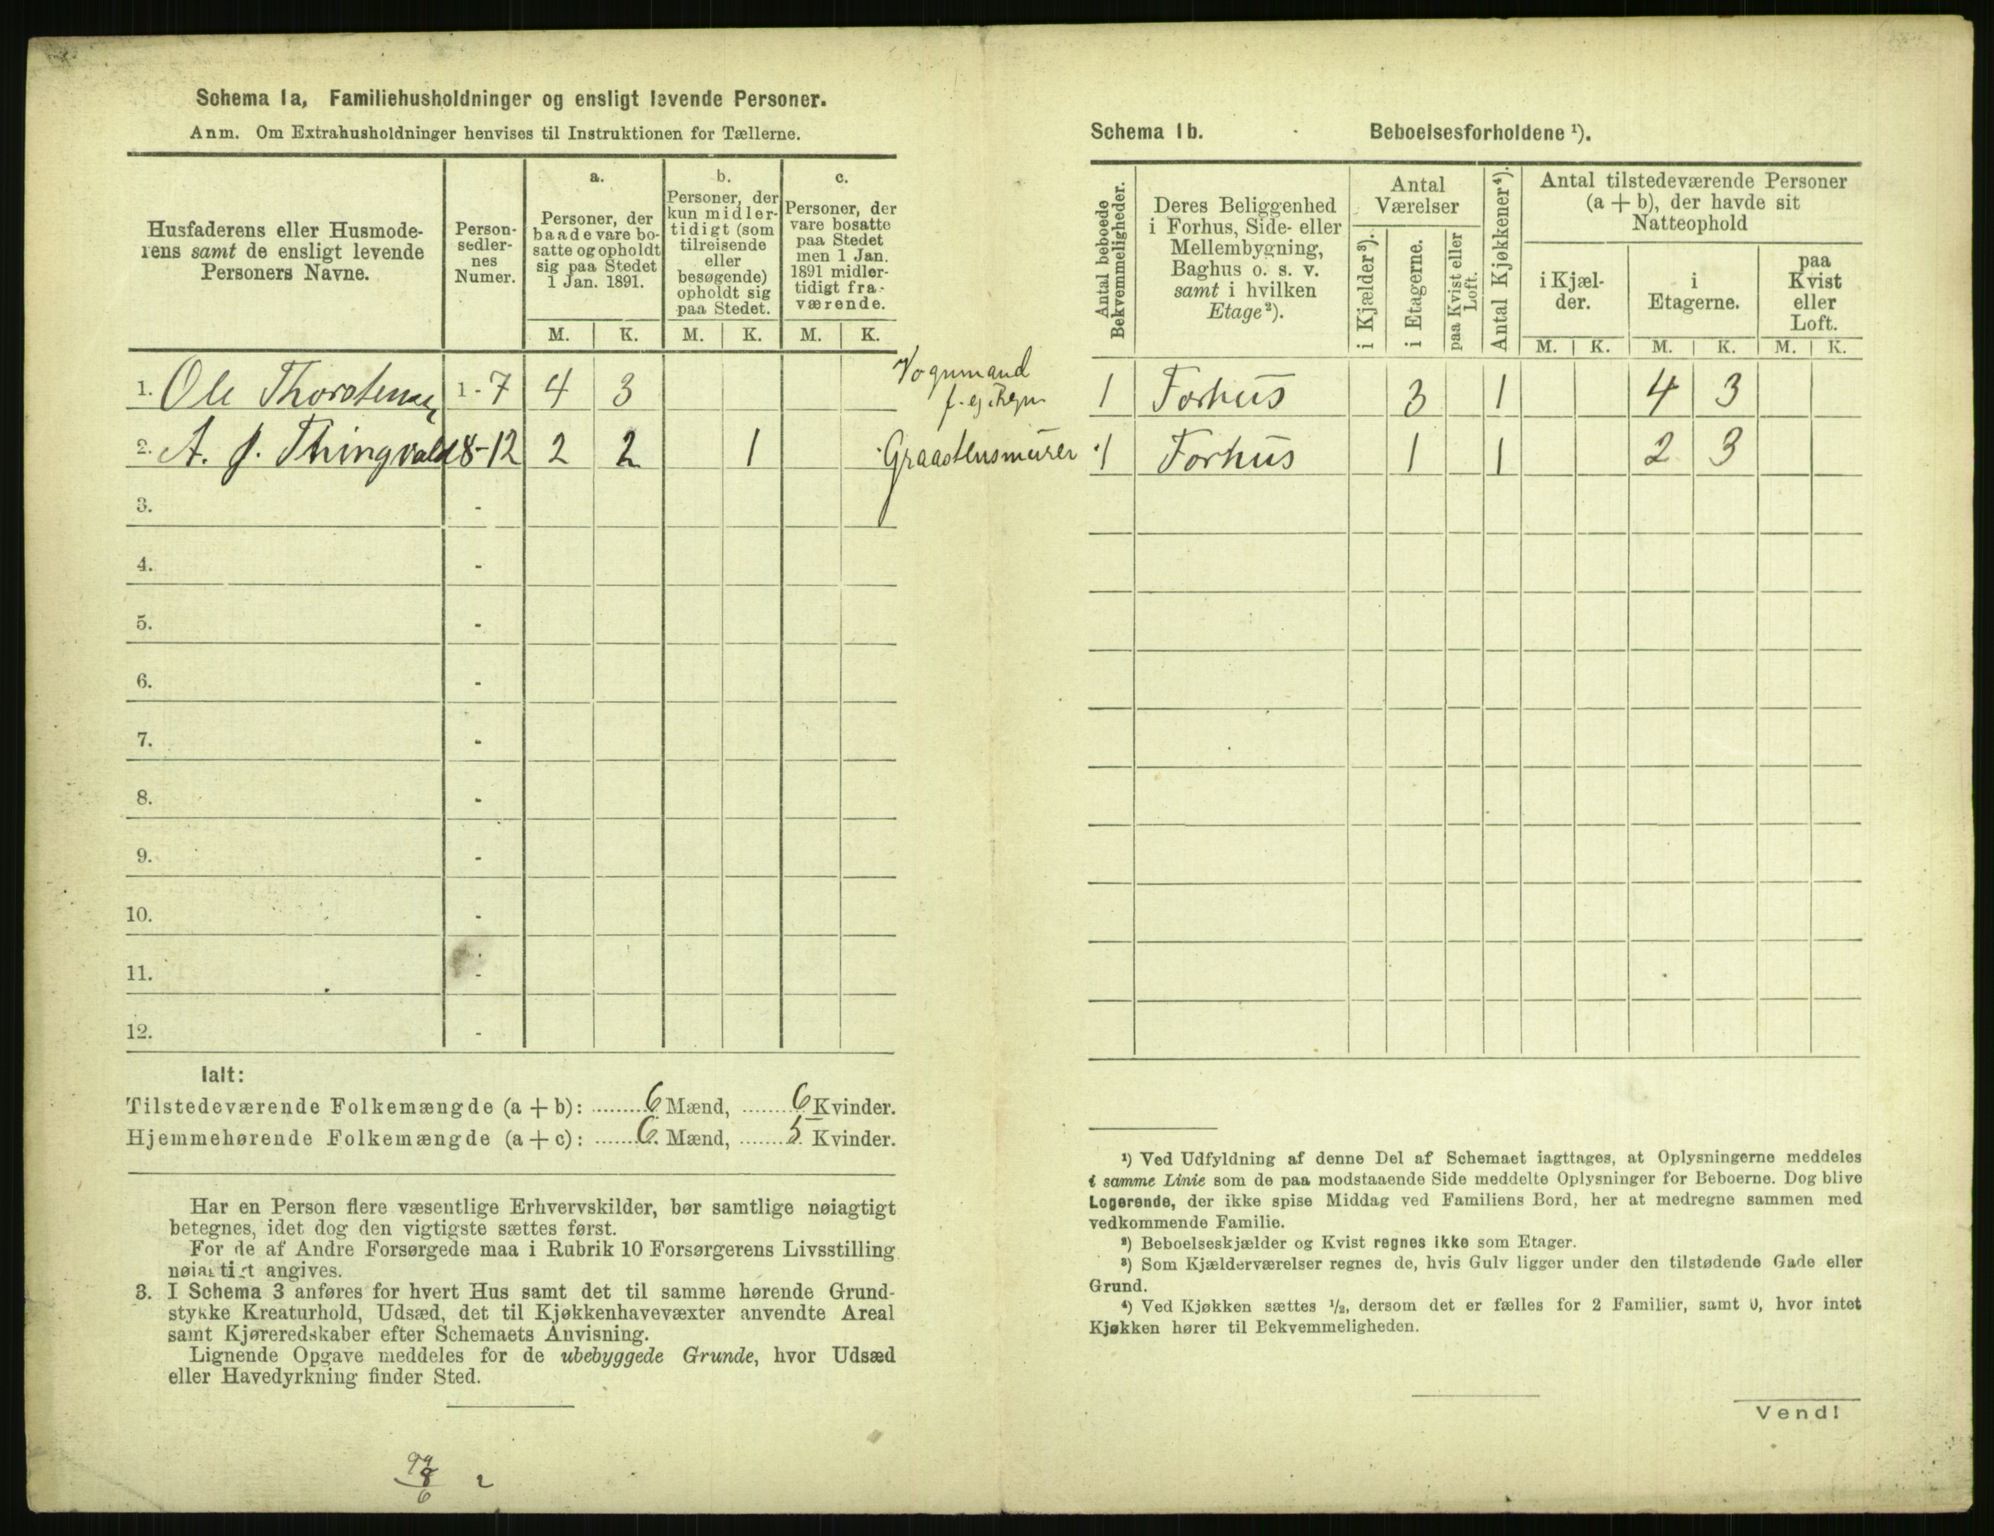 Schema 1a, Familiehusholdninger og ensligt levende Personer.
Anm. Om Extrahusholdninger henvises til Instruktionen for Tællerne.
Husfaderens eller Husmode-
rens samt de ensligt levende
Personers Navne.
Person-
sedler-
nes
Numer.
a.
Personer, der
baade vare bo-
satte og opholdt
sig paa Stedet
1 Jan. 1891.
b.
Personer, der
kun midler-
tidigt (som
tilreisende
eller
besøgende)
opholdt sig
paa Stedet.
c.
Personer, der
vare bosatte
paa Stedet
men 1 Jan.
1891 midler-
tidigt fra-
værende.
M. K. M. K. M. K.
1. Ole Thorstensen 1-7 4 3 Vognmand
f. eg. Regn
2. A. J. Thingvald 8-12 2 2 1 Graastensmurer
3. -
4. -
5. -
6. -
7. -
8. -
9. -
10. -
11. -
12. -
Ialt:
Tilstedeværende Folkemængde (a + b): 6 Mænd, 6 Kvinder.
Hjemmehørende Folkemængde (a + c): 6. Mænd, 5. Kvinder.
Har en Person flere væsentlige Erhvervskilder, bør samtlige nøiagtigt
betegnes, idet dog den vigtigste sættes først.
For de af Andre Forsørgede maa i Rubrik 10 Forsørgerens Livsstilling
nøiagtigt angives.
3. I Schema 3 anføres for hvert Hus samt det til samme hørende Grund-
stykke Kreaturhold, Udsæd, det til Kjøkkenhavevæxter anvendte Areal
samt Kjøreredskaber efter Schemaets Anvisning.
Lignende Opgave meddeles for de ubebyggede Grunde, hvor Udsæd
eller Havedyrkning finder Sted.
Schema 1b. Beboelsesforholdene ¹).
Antal beboede
Bekvemmeligheder.
Deres Beliggenhed
i Forhus, Side- eller
Mellembygning,
Baghus o. s. v.
samt i hvilken
Etage²).
Antal
Værelser
i Kjælder³).
i Etagerne.
paa Kvist eller
Loft.
Antal Kjøkkener⁴).
Antal tilstedeværende Personer
(a + b), der havde sit
Natteophold
i Kjæl-
der.
i
Etagerne.
paa
Kvist
eller
Loft.
M. K. M. K. M. K.
1 Forhus 3 1 4 3
1 Forhus 1 1 2 3
¹) Ved Udfyldning af denne Del af Schemaet iagttages, at Oplysningerne meddeles
i samme Linie som de paa modstaaende Side meddelte Oplysninger for Beboerne. Dog blive
Logerende, der ikke spise Middag ved Familiens Bord, her at medregne sammen med
vedkommende Familie.
²) Beboelseskjælder og Kvist regnes ikke som Etager.
³) Som Kjælderværelser regnes de, hvis Gulv ligger under den tilstødende Gade eller
Grund.
⁴) Ved Kjøkken sættes ½, dersom det er fælles for 2 Familier, samt 0, hvor intet
Kjøkken hører til Bekvemmeligheden.
Vend!